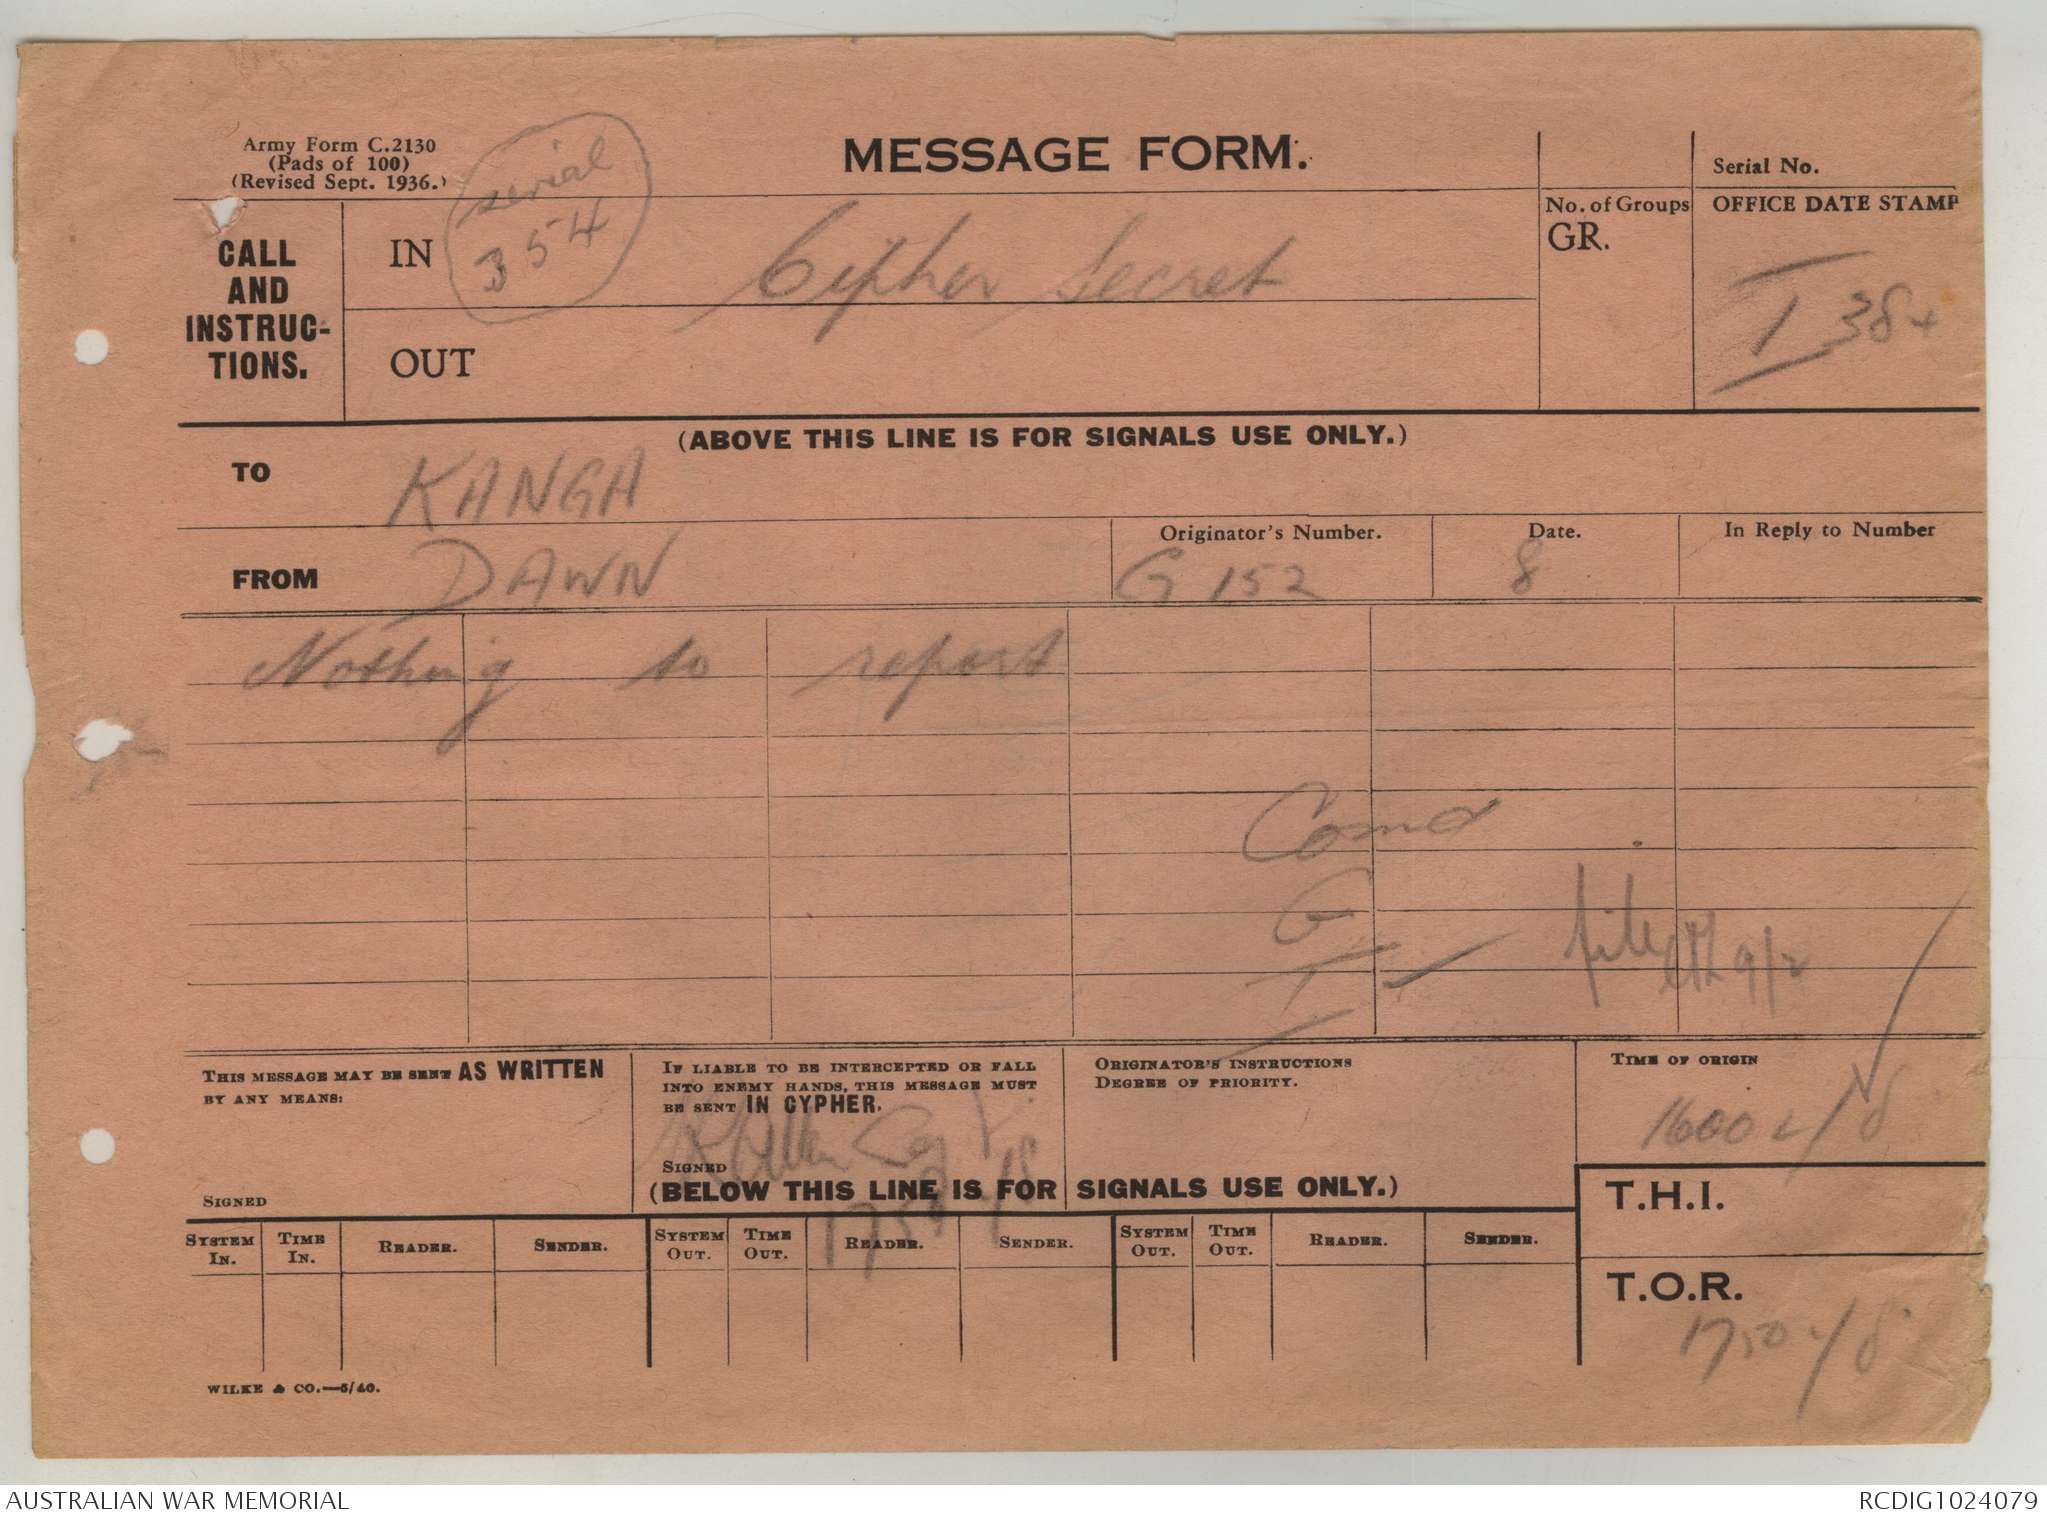 Army Form C.2130
(Pads of 100)
(Revised Sept. 1936.)
serial
354
MESSAGE FORM.
Serial No.
CALL
AND
INSTRUC-
TIONS.
IN
Cipher Secret
OUT
No. of Groups
GR.
OFFICE DATE STAMP
I 384
(ABOVE THIS LINE IS FOR SIGNALS USE ONLY.)
TO KANGA
FROM DAWN
Originator's Number.
G 152
Date.
8
In Reply to Number
Nothing to report
Comd
G
I
file 9/2
THIS MESSAGE MAY BE SENT AS WRITTEN
BY ANY MEANS:
SIGNED
IF LIABLE TO BE INTERCEPTED OR FALL
INTO ENEMY HANDS, THIS MESSAGE MUST
BE SENT IN CYPHER.
SIGNED
1750
ORIGINATOR'S INSTRUCTIONS
DEGREE OF PRIORITY.
TIME OF ORIGIN
1600 L/8
(BELOW THIS LINE IS FOR SIGNALS USE ONLY.)
T.H.I.
SYSTEM IN. TIME IN. READER. SENDER. SYSTEM OUT. TIME OUT. READER. SENDER. SYSTEM OUT. TIME OUT. READER. SENDER.
T.O.R.
1750 L/8
WILKE & CO.—5/40.
AUSTRALIAN WAR MEMORIAL
RCDIG1024079